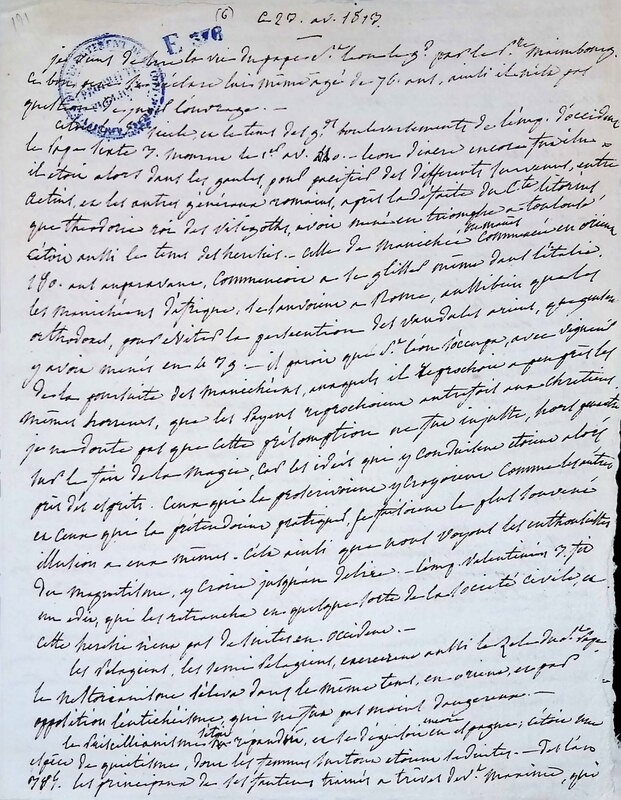 (6) Ce 27. av. 1817.
E 376
je viens de lire la vie du pape St. Leon le gd. par le Pre. Maimbourg.
Ce bon déclare lui même agé de 76. ans, ainsi il n'est pas
question de l'ouvrage. —
C'étoit le siecle et le tems des gds. bouleversements de l'emp. d'occident
le Pape Sixte 3. mourut le 1er. av. 440. — Leon diacre encore fut élu =
il étoit alors dans les gaules, pour pacifier des differents survenus, entre
Aetius, et les autres generaux romains, après la défaite du Cte. litorius
que theodoric roi des visigoths, avoit mené en triomphe a toulouse
C'étoit aussi le tems des heresies. — Celle de Manichée commencée en orient
190. ans auparavant, commencoit a se glisser même dans l'italie.
les Manichéens d'afrique, se sauvoient a Rome, aussi bien que les
orthodoxes, pour éviter la persecution des vandales ariens, que
y avoit menés en 439 — il paroit que St. leon s'occupa, avec vigueur
de la poursuite des manichéens, auxquels il reprochoit a peu près les
mêmes horreurs, que les Payens reprochoient autrefois aux chretiens.
je ne doute pas que cette présomption ne fut injuste, hors peut être
sur le fait de la Magie, car les idées qui y conduisent etoient alors
près des esprits. Ceux qui la proscrivoient y croyoient comme les autres
et ceux qui la pretendoient pratiquer, se faisoient le plus souvent
illusion a eux mêmes. C'est ainsi que nous voyons les enthousiastes
du magnetisme, y croire jusqu'au delire — l'emp. Valentinien 3. fit
un edit, qui les retrancha en quelque sorte de la société civile et
cette heresie n'eut pas de suites en occident. —
les Pelagiens, les semi Pelagiens, exercerent aussi le zele du St. Pape
le nestorianisme s'éleva dans le même tems, en orient, et par
opposition l'eutichéisme, qui ne fut pas moins dangereux. —
le Priscillianisme s'étoit repandu, et se déguisoit encore en espagne; c'étoit une
espèce de quietisme, dont les femmes surtout etoient seduites. — Dès l'an
38 les principaux de ses fauteurs trainés a trèves devt. Maxime, qui